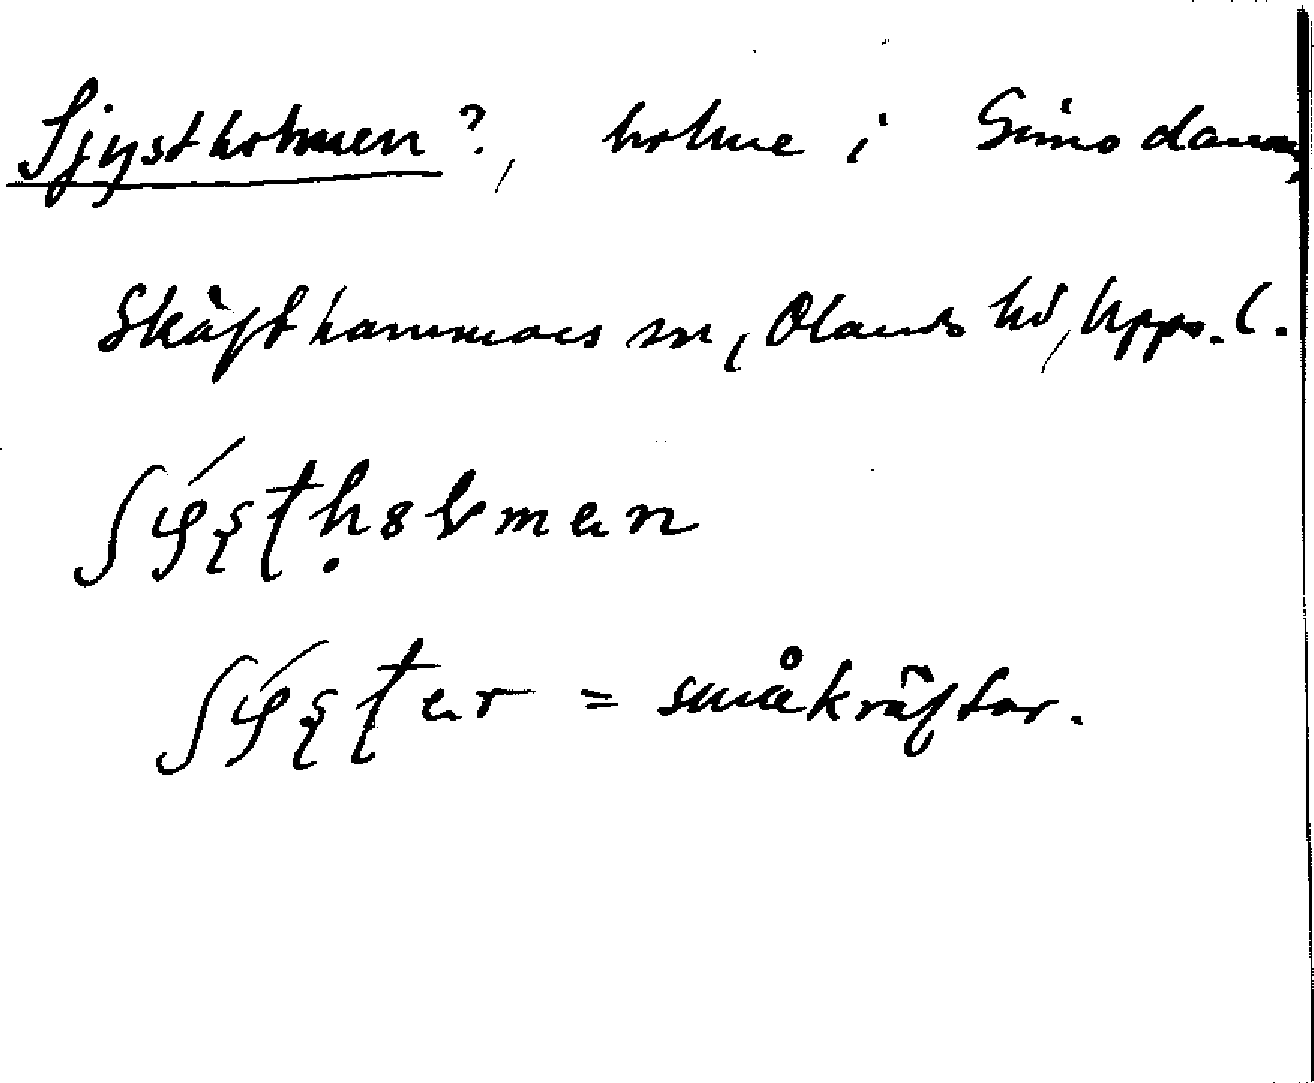 Sjystholmen?, holme i Gimo damm,
Skäfthammars sn, Olands hd, Upps. l.
ʃýstholmen
ʃýster = småkräftor.